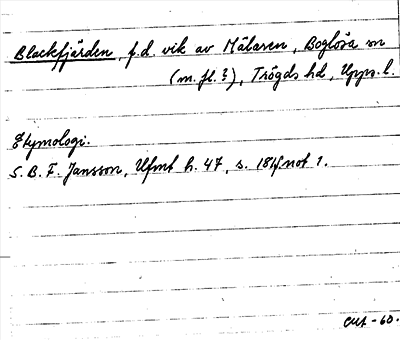 Blackfjärden, f.d. vik av Mälaren, Boglösa sn
(m.fl.?), Trögds hd, Upps. l.
Etymologi:
S. B. F. Jansson, Ufmt h. 47, s. 181f. not 1.
-60.